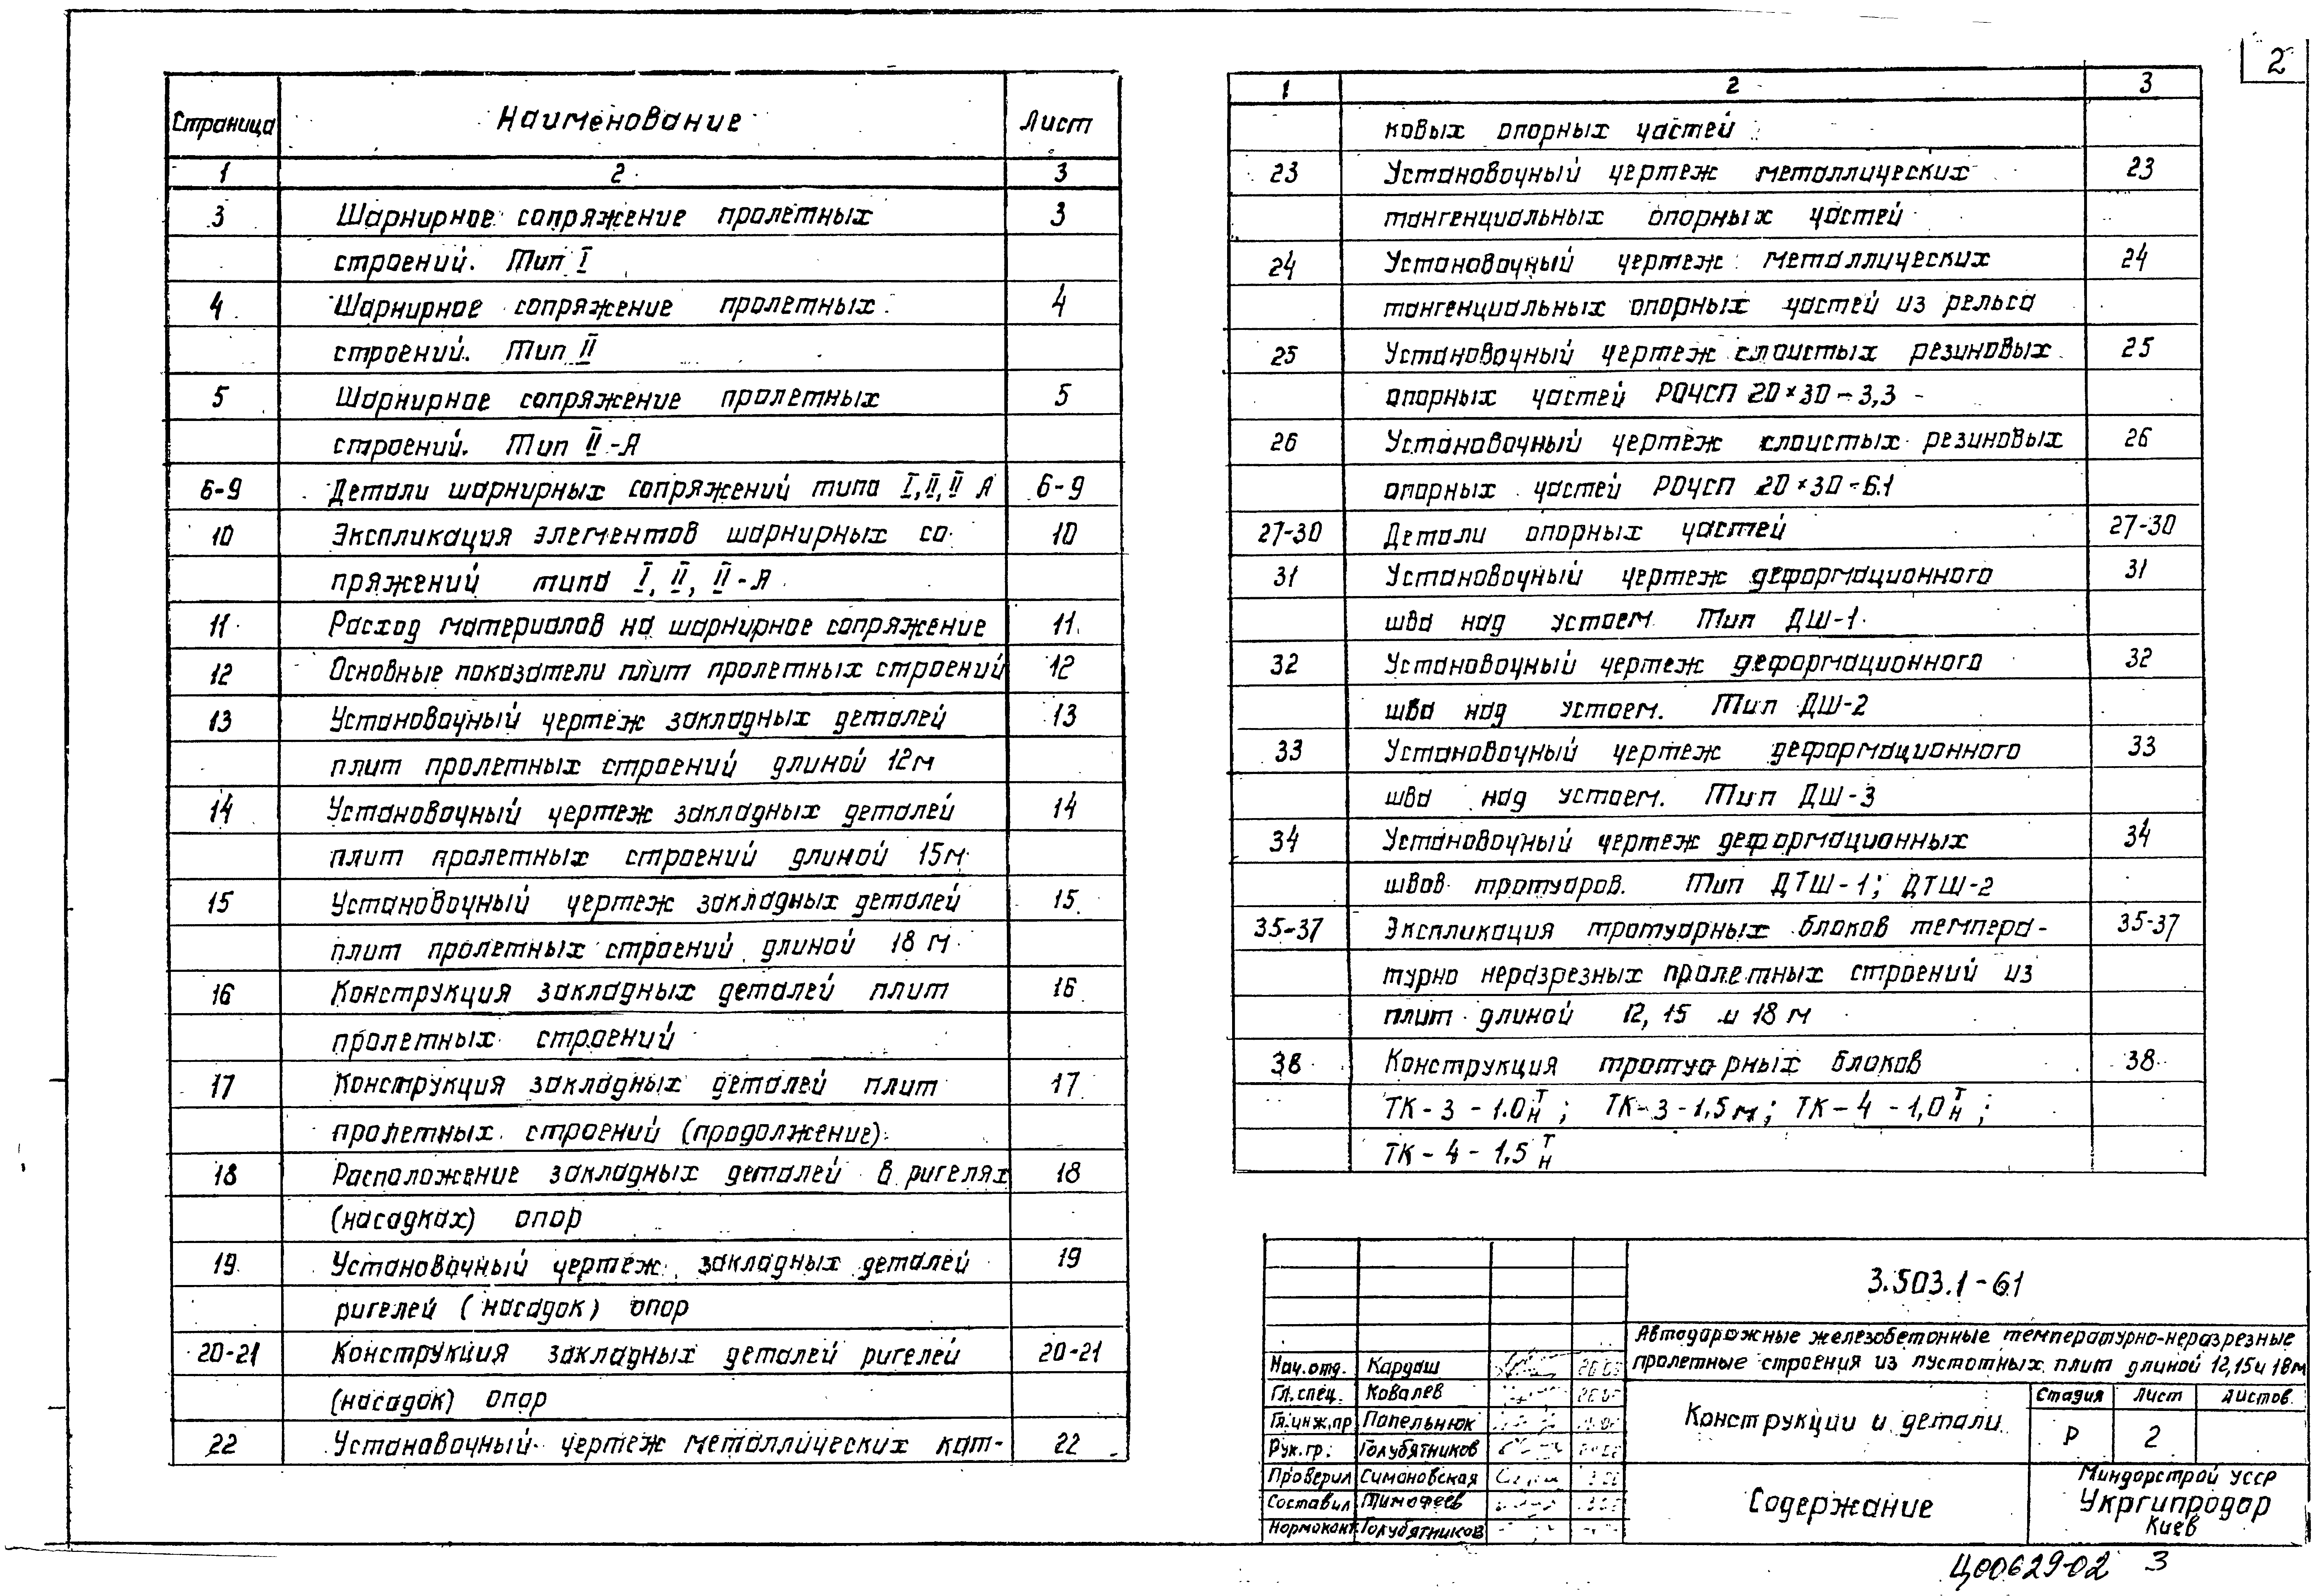 2
Страница Наименование Лист
1 2 3
3 Шарнирное сопряжение пролетных 3
строений. Тип I
4 Шарнирное сопряжение пролетных 4
строений. Тип II
5 Шарнирное сопряжение пролетных 5
строений. Тип II-А
6-9 Детали шарнирных сопряжений типа I, II, II А 6-9
10 Экспликация элементов шарнирных со- 10
пряжений типа I, II, II-А
11 Расход материалов на шарнирное сопряжение 11
12 Основные показатели плит пролетных строений 12
13 Установочный чертеж закладных деталей 13
плит пролетных строений длиной 12м
14 Установочный чертеж закладных деталей 14
плит пролетных строений длиной 15м
15 Установочный чертеж закладных деталей 15
плит пролетных строений длиной 18 м
16 Конструкция закладных деталей плит 16
пролетных строений
17 Конструкция закладных деталей плит 17
пролетных строений (продолжение)
18 Расположение закладных деталей в ригелях 18
(насадках) опор
19 Установочный чертеж закладных деталей 19
ригелей (насадок) опор
20-21 Конструкция закладных деталей ригелей 20-21
(насадок) опор
22 Установочный чертеж металлических кат- 22
1 2 3
ковых опорных частей
23 Установочный чертеж металлических 23
тангенциальных опорных частей
24 Установочный чертеж металлических 24
тангенциальных опорных частей из рельса
25 Установочный чертеж слоистых резиновых 25
опорных частей РОЧСП 20×30-3,3
26 Установочный чертеж слоистых резиновых 26
опорных частей РОЧСП 20×30-6.1
27-30 Детали опорных частей 27-30
31 Установочный чертеж деформационного 31
шва над устоем. Тип ДШ-1
32 Установочный чертеж деформационного 32
шва над устоем. Тип ДШ-2
33 Установочный чертеж деформационного 33
шва над устоем. Тип ДШ-3
34 Установочный чертеж деформационных 34
швов тротуаров. Тип ДТШ-1; ДТШ-2
35-37 Экспликация тротуарных блоков темпера- 35-37
турно неразрезных пролетных строений из
плит длиной 12, 15 и 18 м
38 Конструкция тротуарных блоков 38
ТК-3-1.0 Т/Н; ТК-3-1,5м; ТК-4-1,0 Т/Н;
ТК-4-1.5 Т/Н
3.503.1-61
Автодорожные железобетонные температурно-неразрезные
пролетные строения из пустотных плит длиной 12,15 и 18м
Нач.отд. Кардаш
Гл.спец. Ковалев
Гл.инж.пр Попельнюк
Рук.гр. Голубятников
Проверил Симановская
Составил Тимофеев
Нормоконт. Голубятников
Конструкции и детали
Стадия Лист Листов
Р 2
Содержание
Миндорстрой УССР
Укргипродор
Киев
Ц00629-02 3